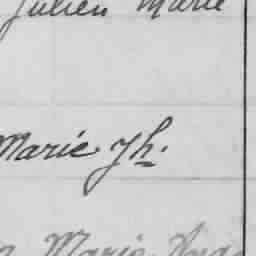 Julien Marie
Marie Jh.
Marie